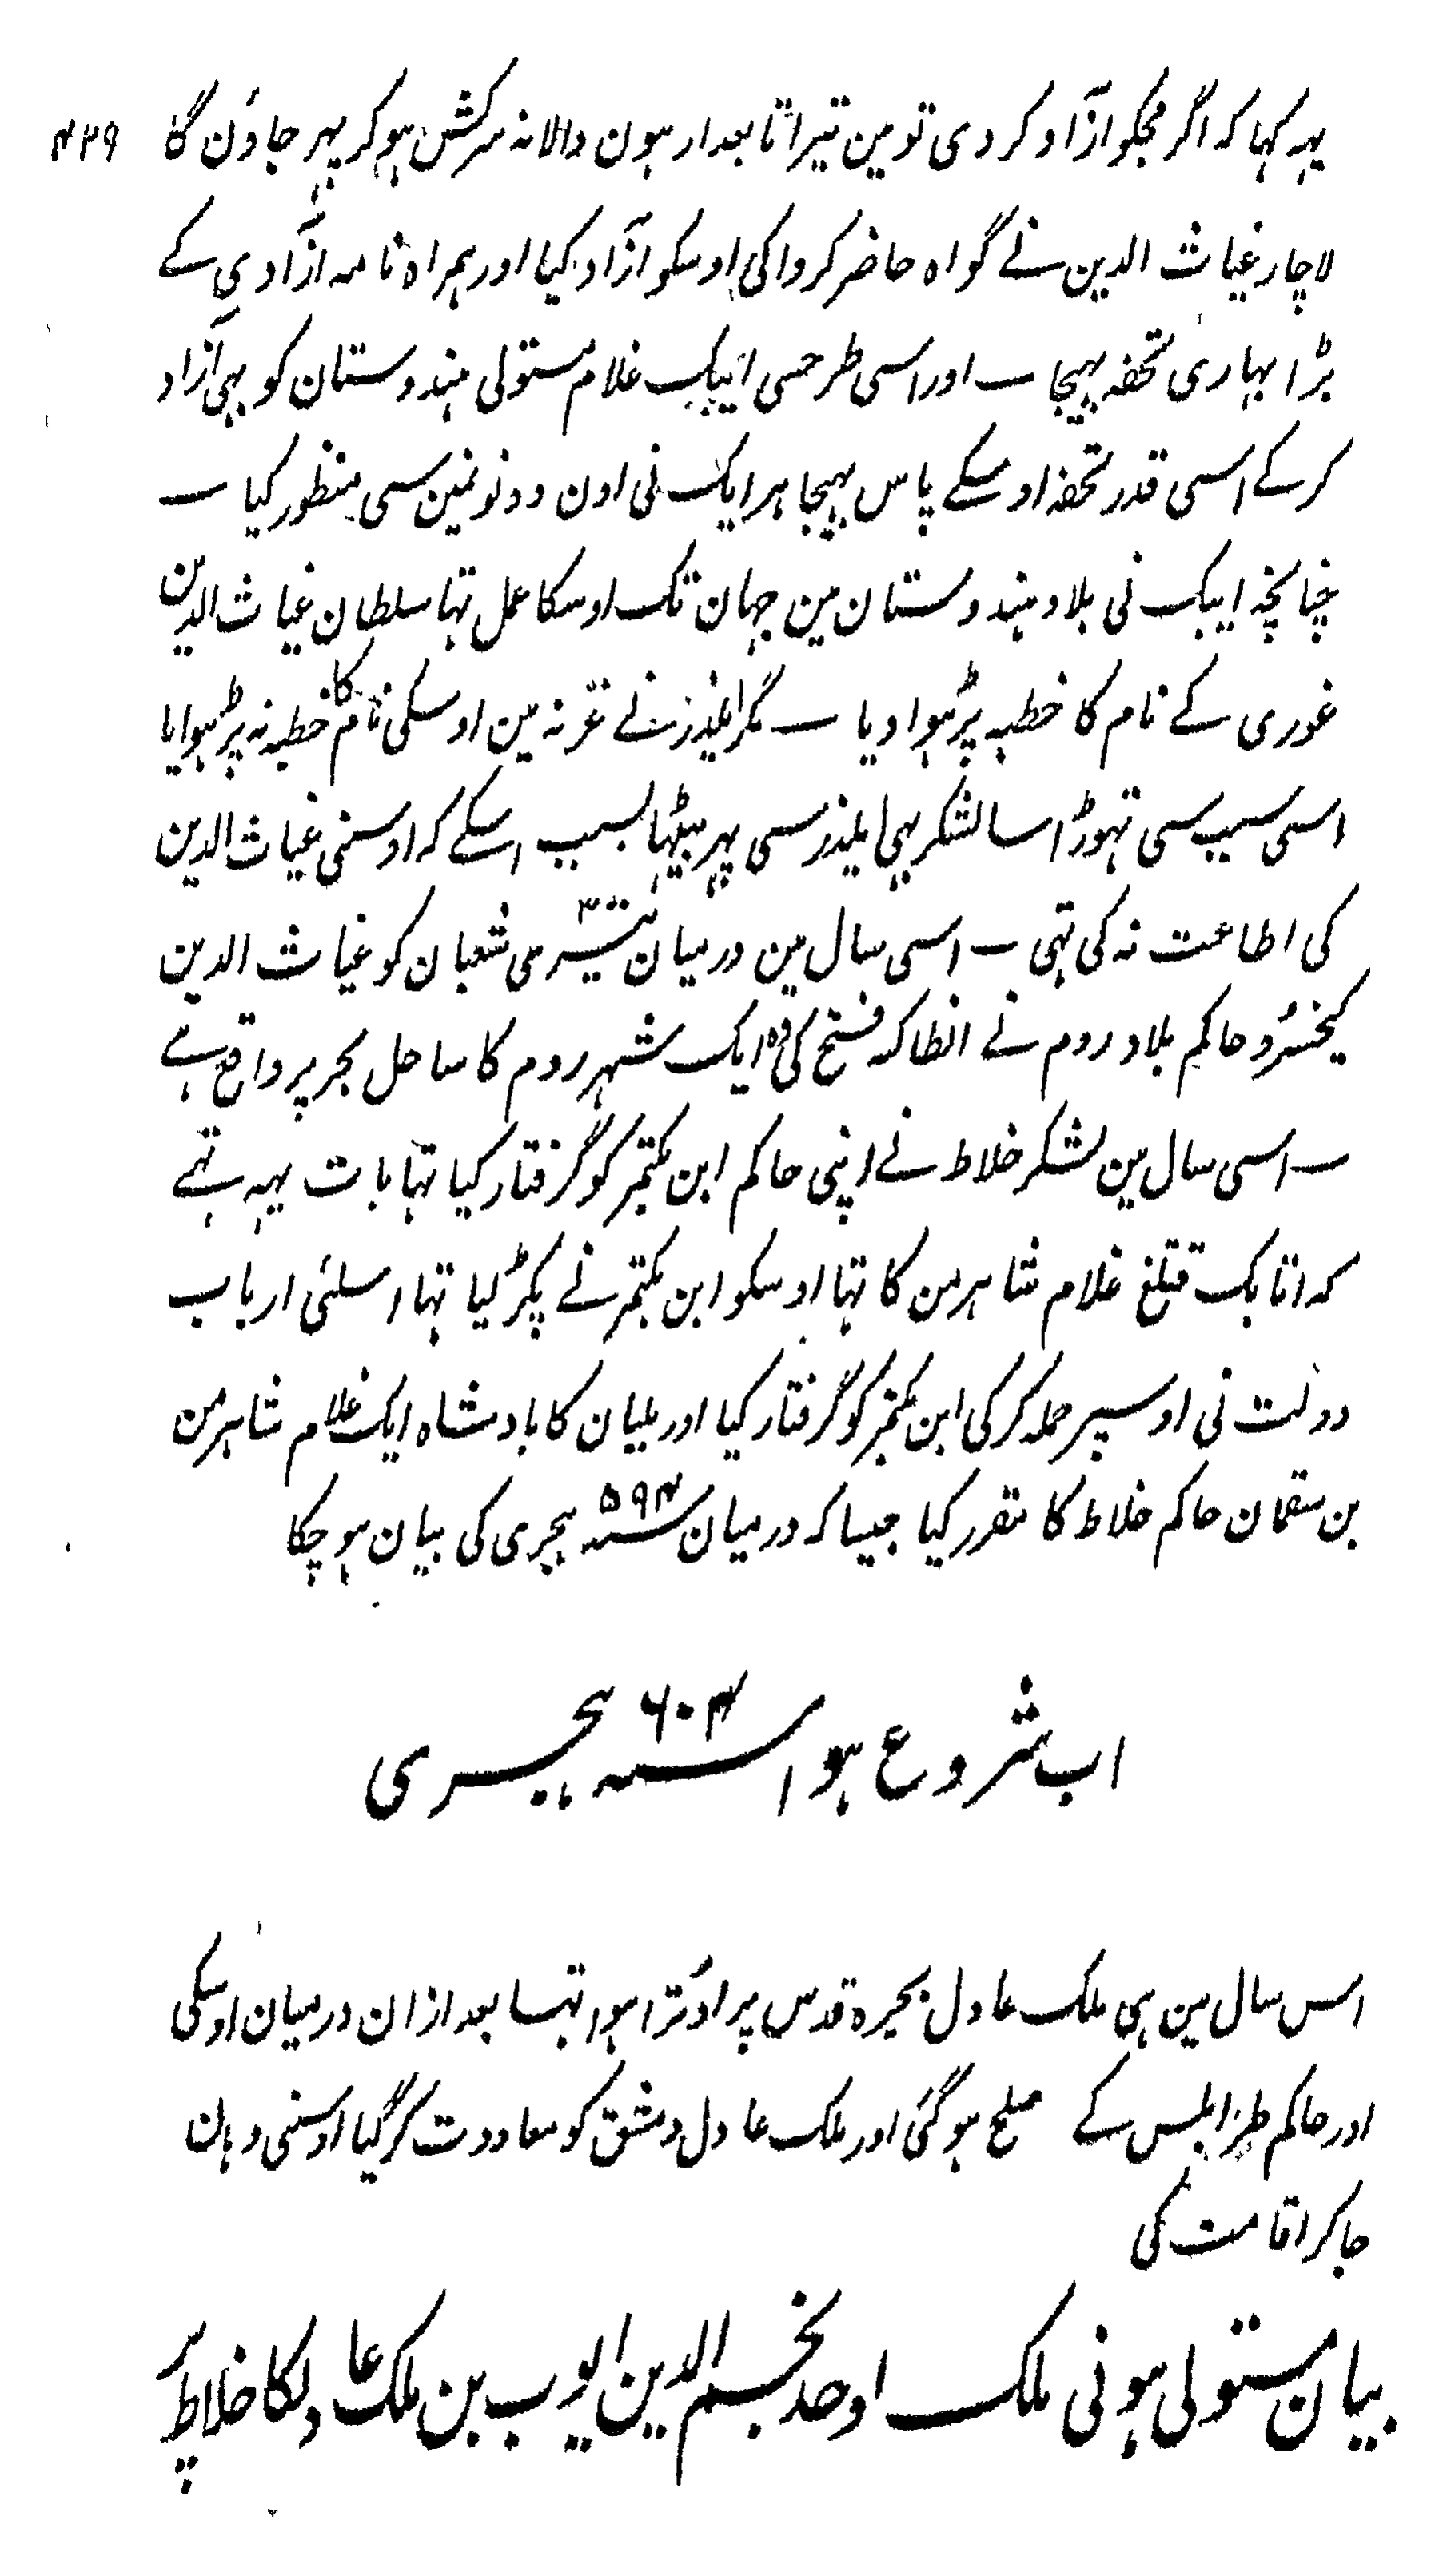 ۴۲۹
یہہ کہا کہ اگر مجکو ازاد کر دی تو مین تیرا تابعدار ہون والا نہ سرکش ہو کر پہر جاوُن گا
لاچار غیاث الدین نے گواہ حاضر کروا کی اوسکو ازاد کیا اور ہمراہ نامہ ازادی کے
بڑا بہاری تحفہ بہیجا ــ اور اسی طرحسی ایبک غلام مستولی ہندوستان کو بہی آزاد
کر کے اسی قدر تحفہ اوسکے پاس بہیجا ہر ایک نی اون دونونمین سی منظور کیا ــ
چنانچہ ایبک نی بلاد ہندوستان مین جہان تک اوسکا عمل تہا سلطان غیاث الدین
غوری کے نام کا خطبہ پڑہوا دیا ــ مگر ایلدز نے غزنہ مین اوسکی نام کا خطبہ نہ پڑہوایا
اسی سبب سی تہوڑا سا لشکر بہی ایلدز سی پہر بیٹہا بسبب اسکے کہ اوسنی غیاث الدین
کی اطاعت نہ کی تہی ــ اسی سال مین درمیان تیسری شعبان کو غیاث الدین
کیخسرُو حاکم بلاد روم نے انطاکہ فتح کی وہ ایک شہر روم کا ساحل بحر پر واقع ہے
ــ اسی سال مین لشکر خلاط نے اپنی حاکم ابن بکتمر کو گرفتار کیا تہا بات یہہ تہے
کہ اتابک قتلغ غلام شاہرمن کا تہا اوسکو ابن بکتمر نے پکڑ لیا تہا اسلئی ارباب
دولت نی اوسپر حملہ کر کی ابن بکتمر کو گرفتار کیا اور بلیان کا بادشاہ ایک غلام شاہرمن
بن سقمان حاکم خلاط کا مقرر کیا جیسا کہ درمیان سنہ ۵۹۴ ہجری کی بیان ہو چکا
اب شروع ہوا سنہ ۶۰۴ ہجری
اس سال مین ہی ملک عادل بحیرہ قدس پر اوُترا ہوا تہا بعد ازان درمیان اوسکی
اور حاکم طرابلس کے صلح ہو گئی اور ملک عادل دمشق کو معاودت کر گیا اوسنی وہان
جا کر اقامت کی
بیان مستولی ہونی ملک اوحد نجم الدین ایوب بن ملک عادلکا خلاط پر